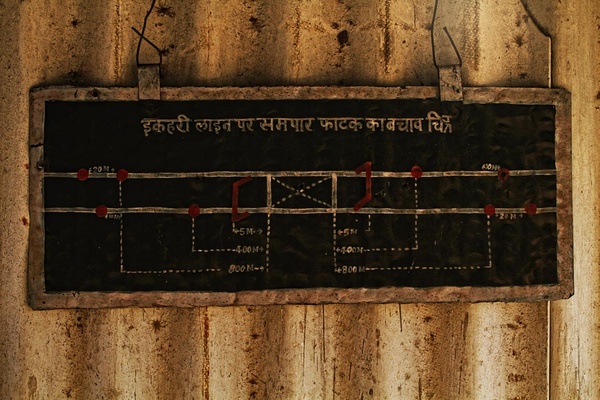 इकहरी लाइन पर समपार फाटक का बचाव चिन्ह
20M
10M
20M
5M
5M
400M
400M
800M
800M